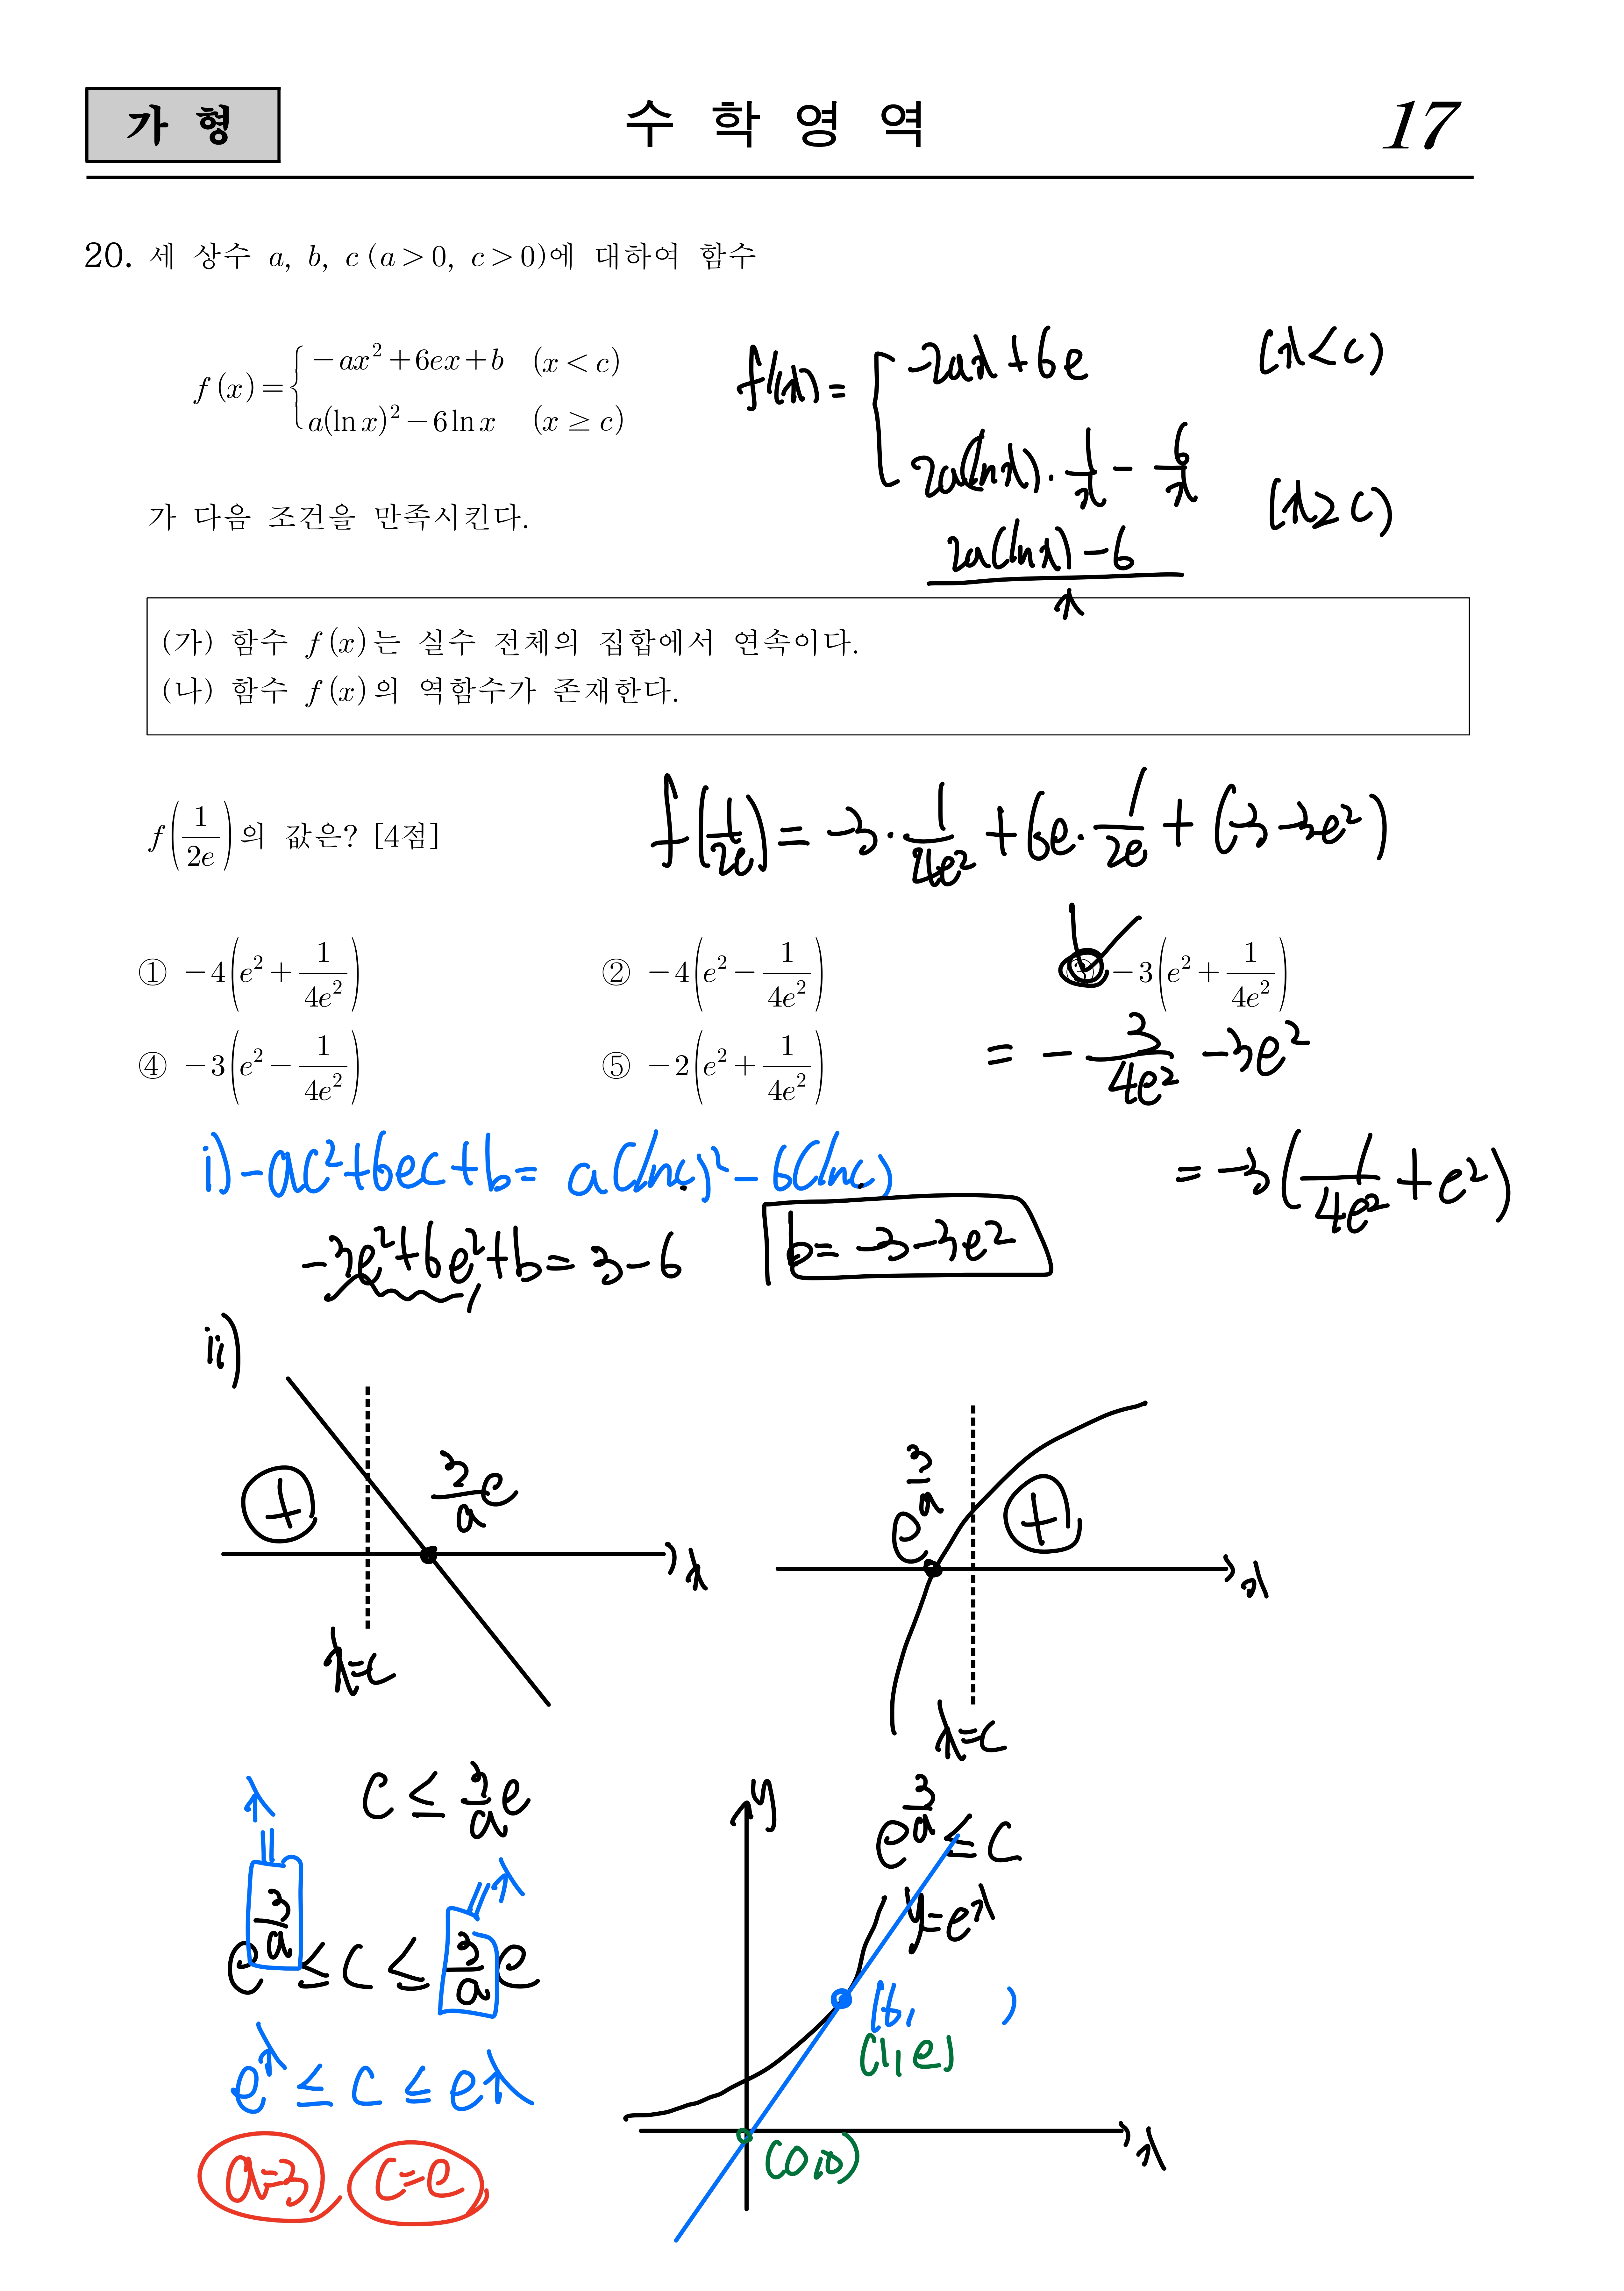 가 형
수 학 영 역
17
20. 세 상수 a, b, c (a > 0, c > 0)에 대하여 함수
f(x) = { -ax² + 6ex + b (x < c)
a(ln x)² - 6 ln x (x ≥ c)
f'(x) = { -2ax + 6e (x < c)
2a(ln x) · 1/x - 6/x (x ≥ c)
(2a(ln x) - 6)/x
가 다음 조건을 만족시킨다.
(가) 함수 f(x)는 실수 전체의 집합에서 연속이다.
(나) 함수 f(x)의 역함수가 존재한다.
f(1/2e)의 값은? [4점]
f(1/2e) = -3 · 1/4e² + 6e · 1/2e + (-3 - 3e²)
① -4(e² + 1/4e²) ② -4(e² - 1/4e²) ③ -3(e² + 1/4e²)
④ -3(e² - 1/4e²) ⑤ -2(e² + 1/4e²)
= - 3/4e² - 3e²
= -3(1/4e² + e²)
i) -ac² + 6ec + b = a(ln c)² - 6(ln c)
-3e² + 6e² + b = 3 - 6
b = -3 - 3e²
ii)
+ 3/a e x
x = c
e^(3/a) + x
x = c
c ≤ 3/a e
e^(3/a) ≤ c
x
=
= x
e^(3/a) ≤ c ≤ 3/a e
e^x ≤ c ≤ ex
a = 3, c = e
y
y = e^x
(t, )
(1, e)
(0,0)
x